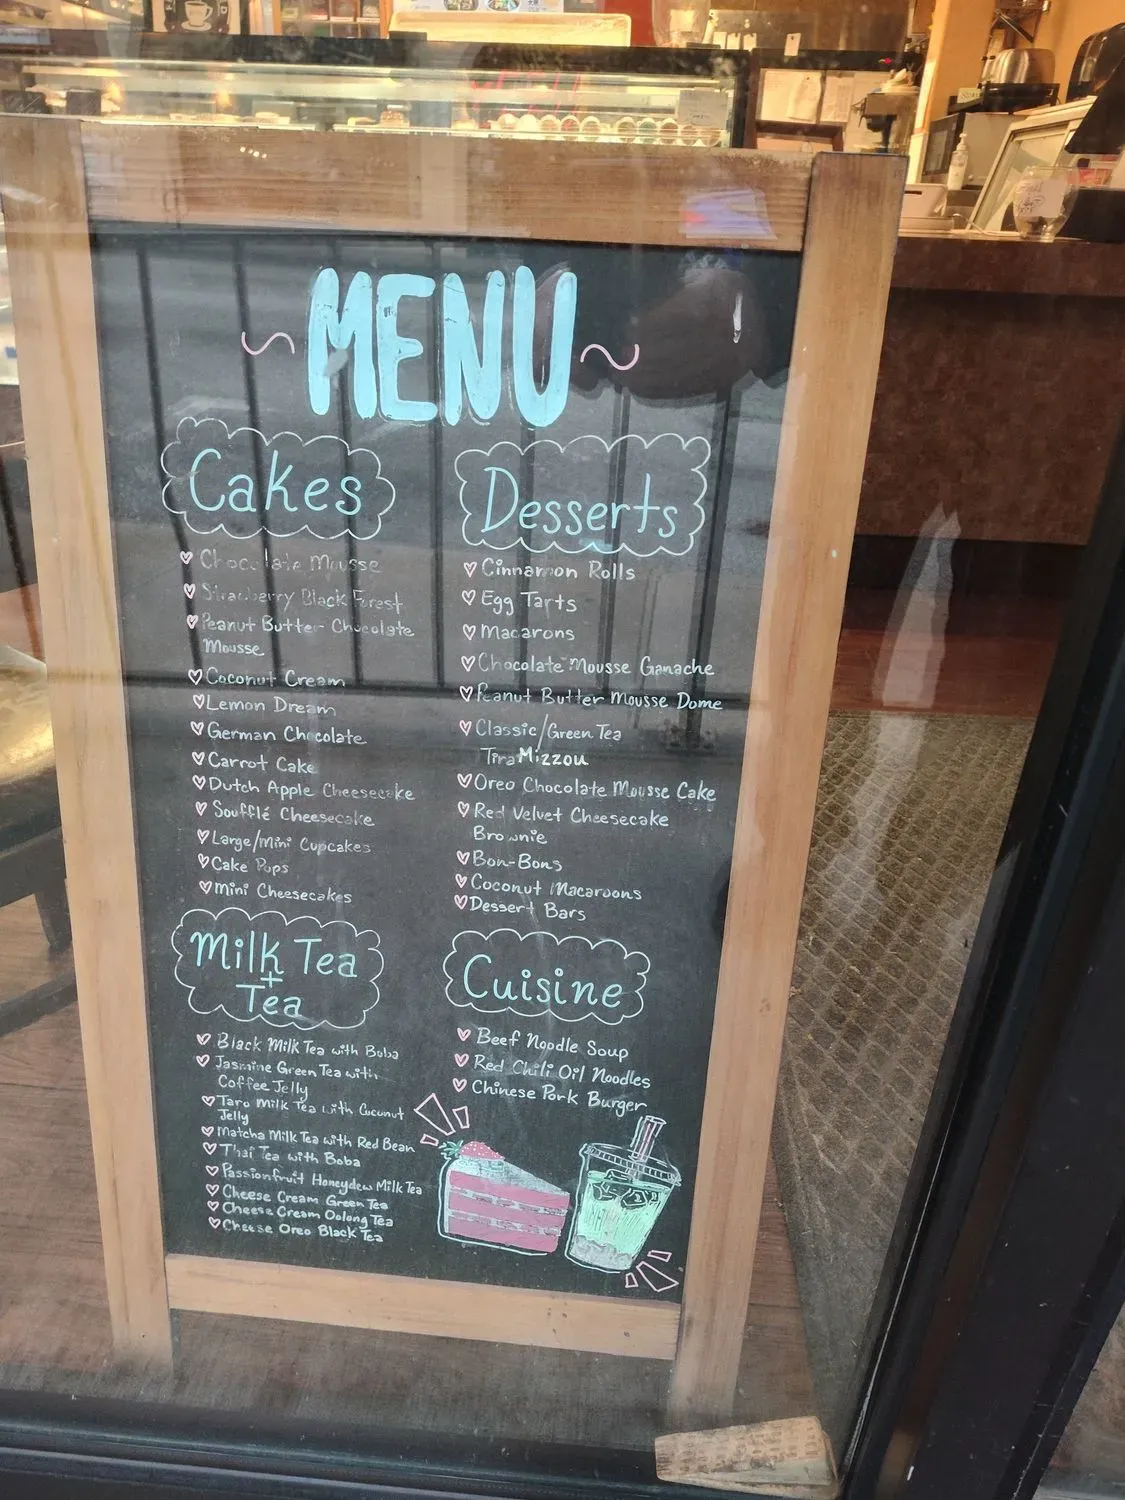 ~ MENU ~
Cakes
Chocolate Mousse
Strawberry Black Forest
Peanut Butter Chocolate
Mousse
Coconut Cream
Lemon Dream
German Chocolate
Carrot Cake
Dutch Apple Cheesecake
Soufflé Cheesecake
Large/Mini Cupcakes
Cake Pops
Mini Cheesecakes
Desserts
Cinnamon Rolls
Egg Tarts
Macarons
Chocolate Mousse Ganache
Peanut Butter Mousse Dome
Classic/Green Tea
TiraMizzou
Oreo Chocolate Mousse Cake
Red Velvet Cheesecake
Brownie
Bon-Bons
Coconut Macaroons
Dessert Bars
Milk Tea
+
Tea
Black Milk Tea with Boba
Jasmine Green Tea with
Coffee Jelly
Taro Milk Tea with Coconut
Jelly
Matcha Milk Tea with Red Bean
Thai Tea with Boba
Passionfruit Honeydew Milk Tea
Cheese Cream Green Tea
Cheese Cream Oolong Tea
Cheese Oreo Black Tea
Cuisine
Beef Noodle Soup
Red Chili Oil Noodles
Chinese Pork Burger